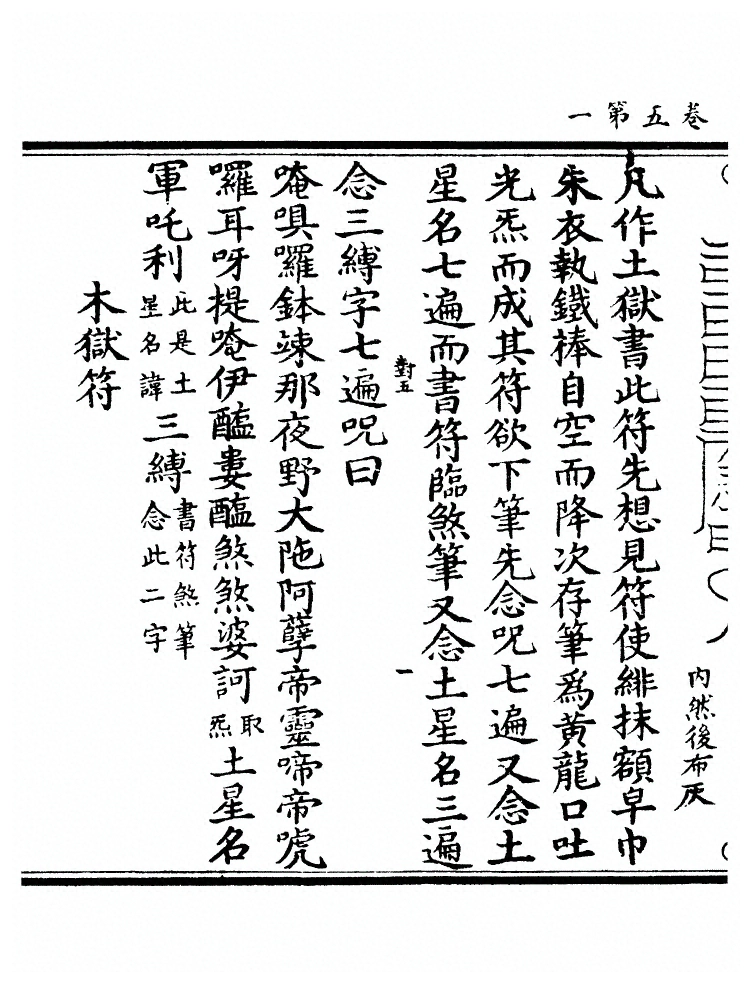 卷五第一
內然後布灰
凡作土獄書此符先想見符使緋抹額皁巾
朱衣執鐵棒自空而降次存筆爲黃龍口吐
光炁而成其符欲下筆先念呪七遍又念土
星名七遍而書符臨煞筆又念土星名三遍
對五 一
念三縛字七遍呪曰
唵㖠囉鉢竦那夜野大陁阿孽帝靈啼帝唬
囉耳呀㮛唵伊醯婁醯煞煞婆訶取炁土星名
軍吒利此是土星名諱三縛書符煞筆念此二字
木獄符